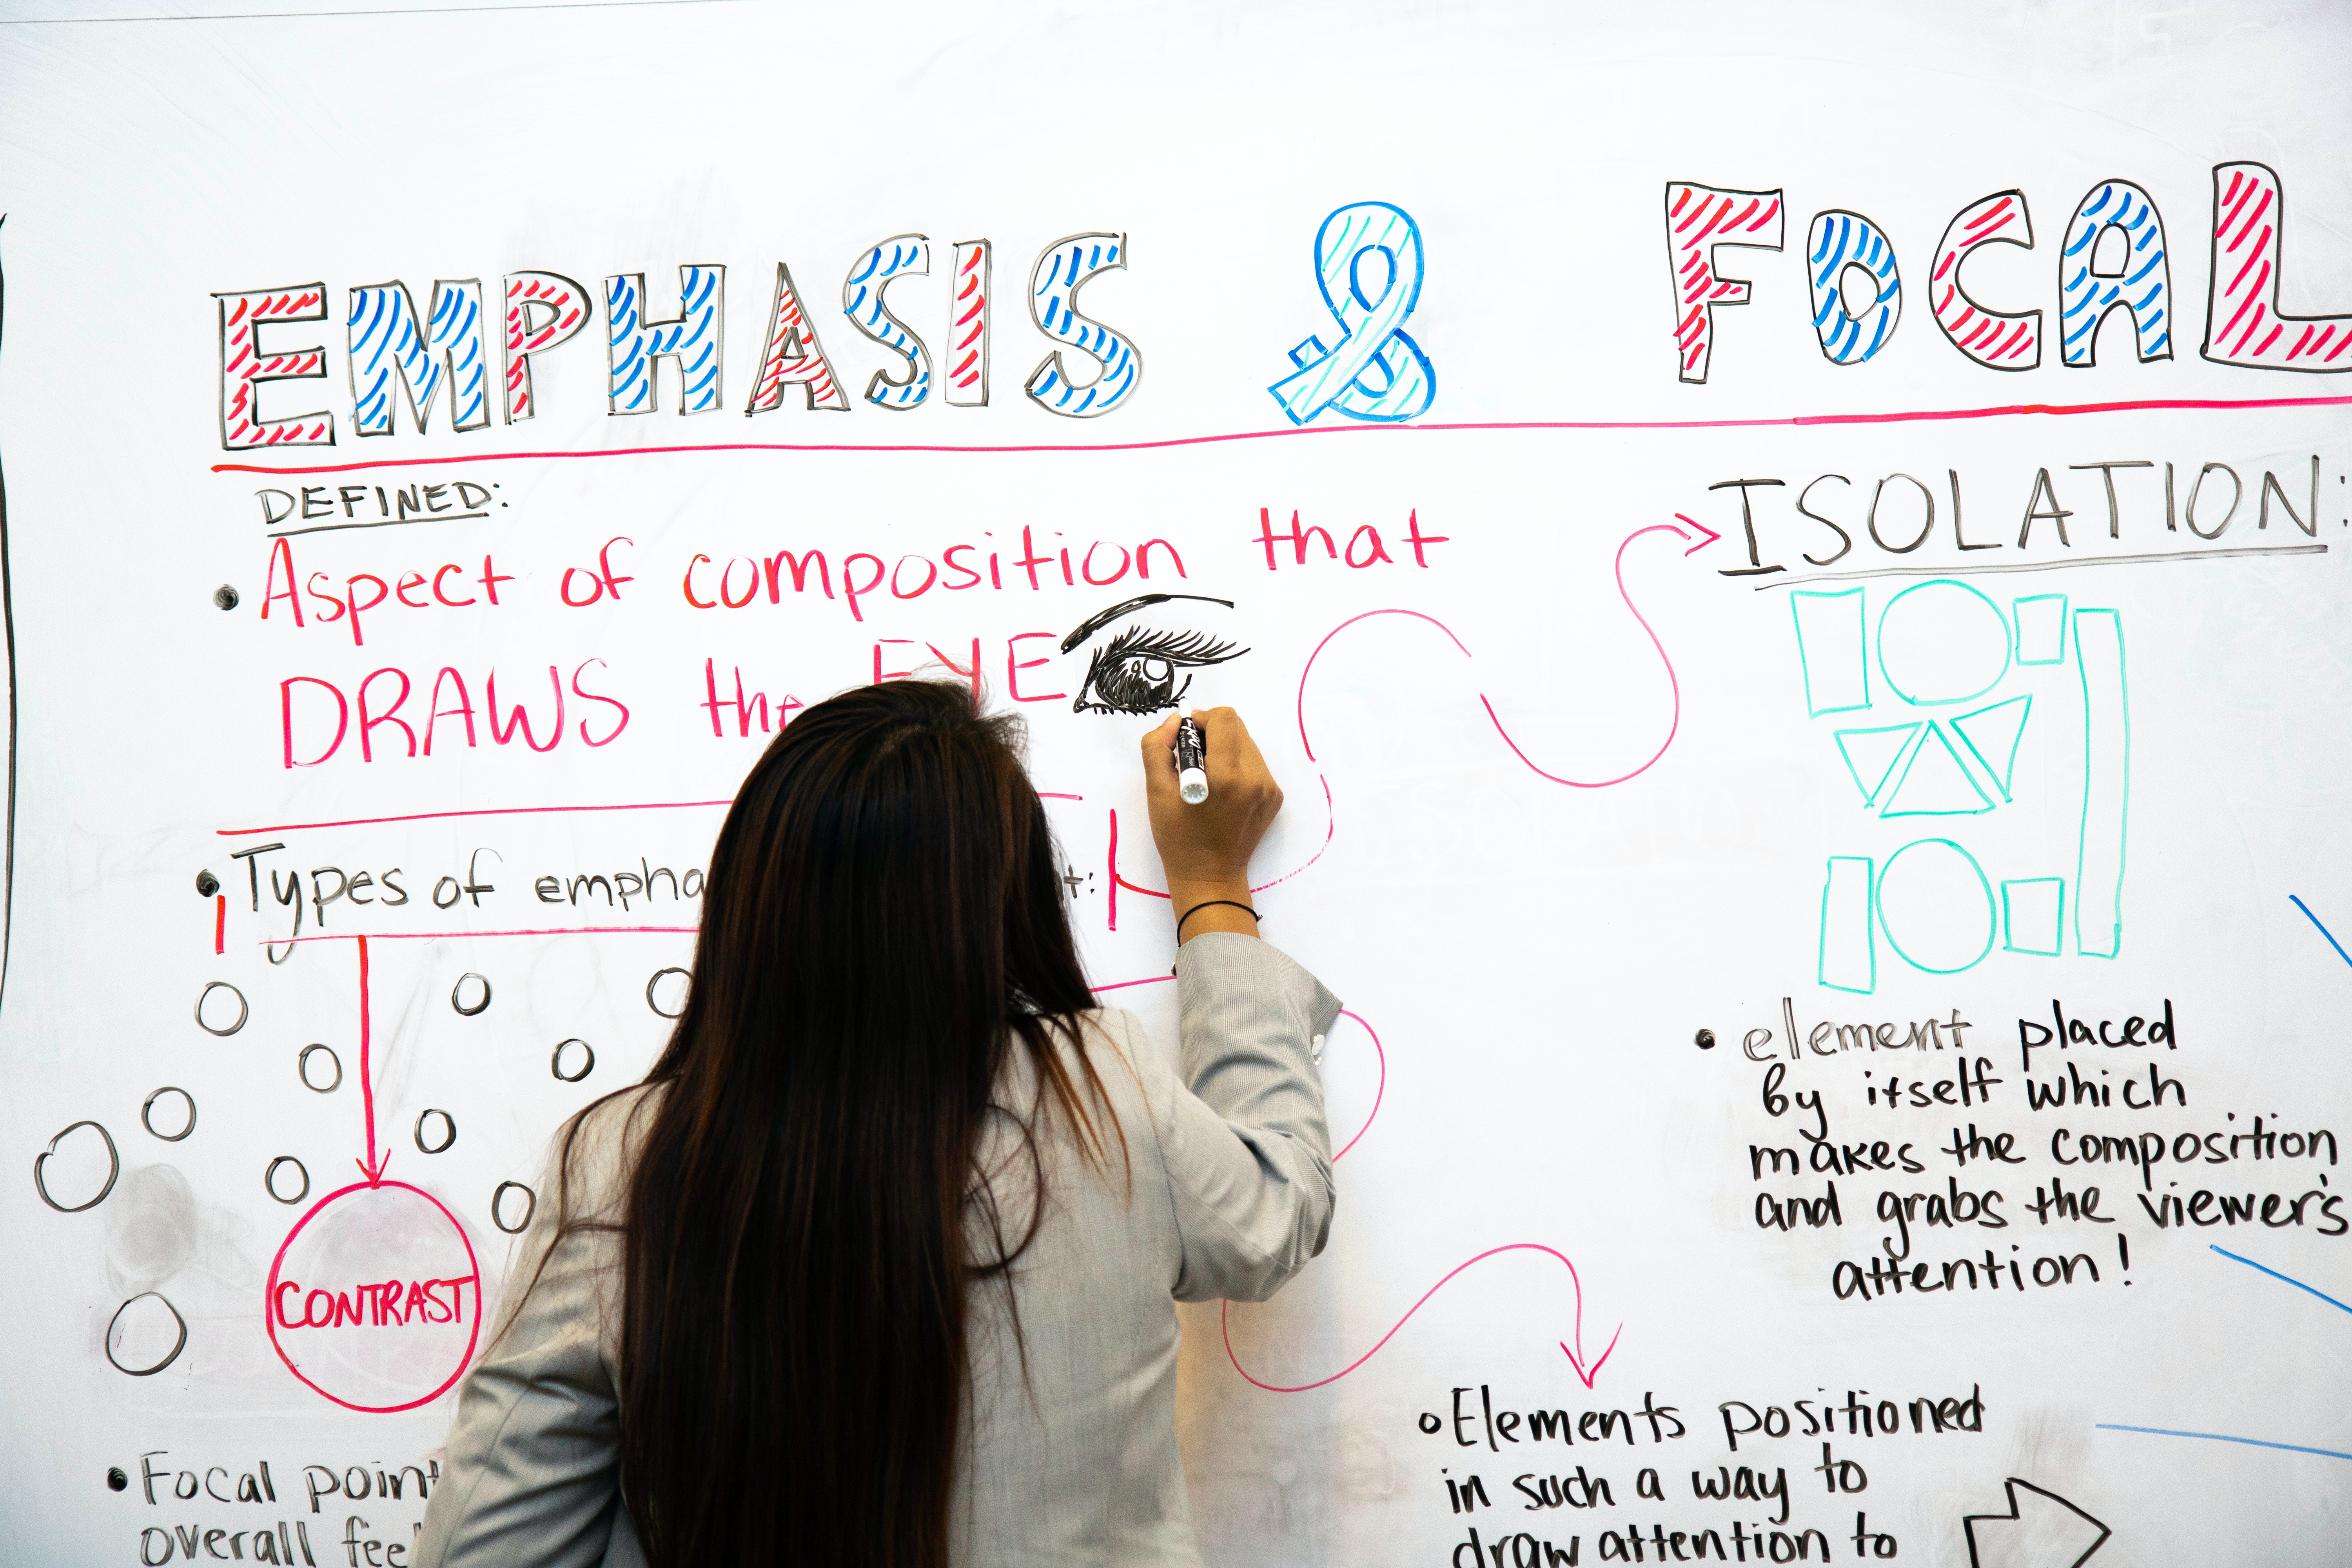 EMPHASIS & FOCAL
DEFINED:
• Aspect of composition that
DRAWS the EYE
• Types of
CONTRAST
• Focal point
overall
ISOLATION:
• element placed
by itself which
makes the composition
and grabs the viewer's
attention!
• Elements positioned
in such a way to
draw attention to
EXPO